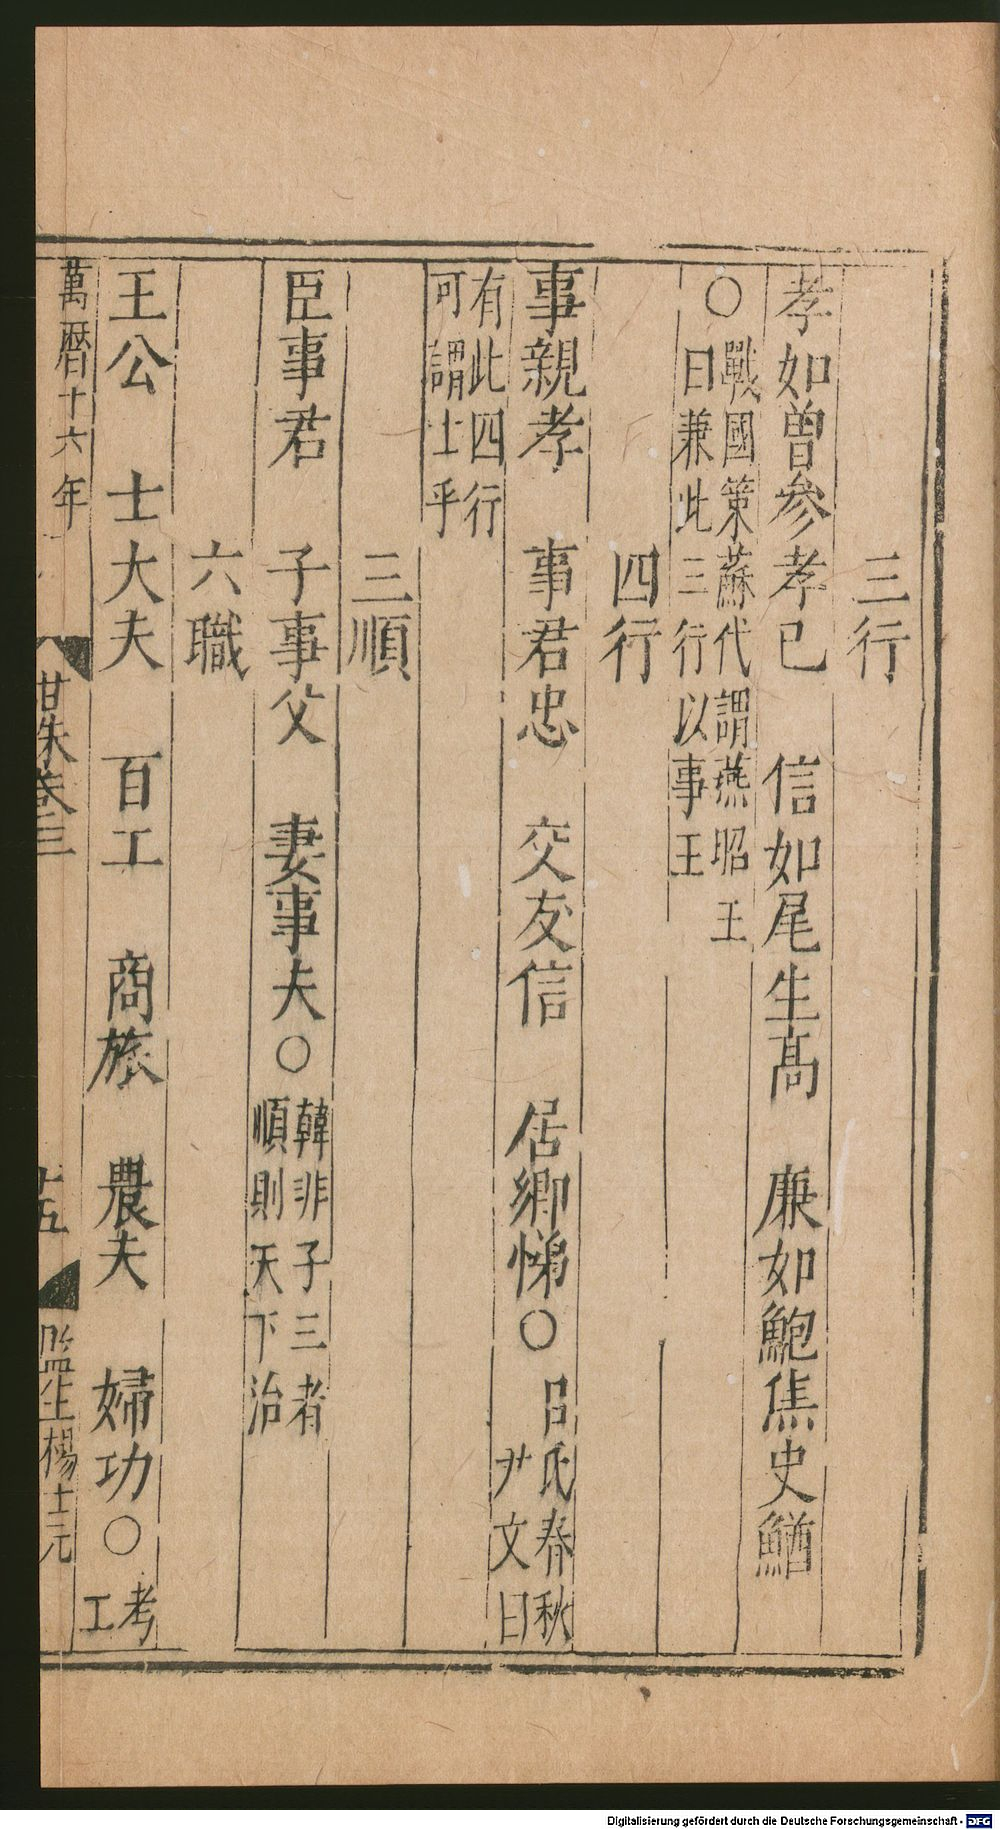 三行
孝如曽參孝已　信如尾生髙　廉如鮑焦史鰌
○戰國策蘇代謂燕昭王
曰兼此三行以事王
四行
事親孝　事君忠　交友信　居鄉悌○呂氏春秋
尹文曰
有此四行
可謂士乎
三順
臣事君　子事父　妻事夫○韓非子三者
順則天下治
六職
王公　士大夫　百工　商旅　農夫　婦功○考
工
萬曆十六年
甘珠卷三
十五
監生楊士元
Digitalisierung gefördert durch die Deutsche Forschungsgemeinschaft - DFG